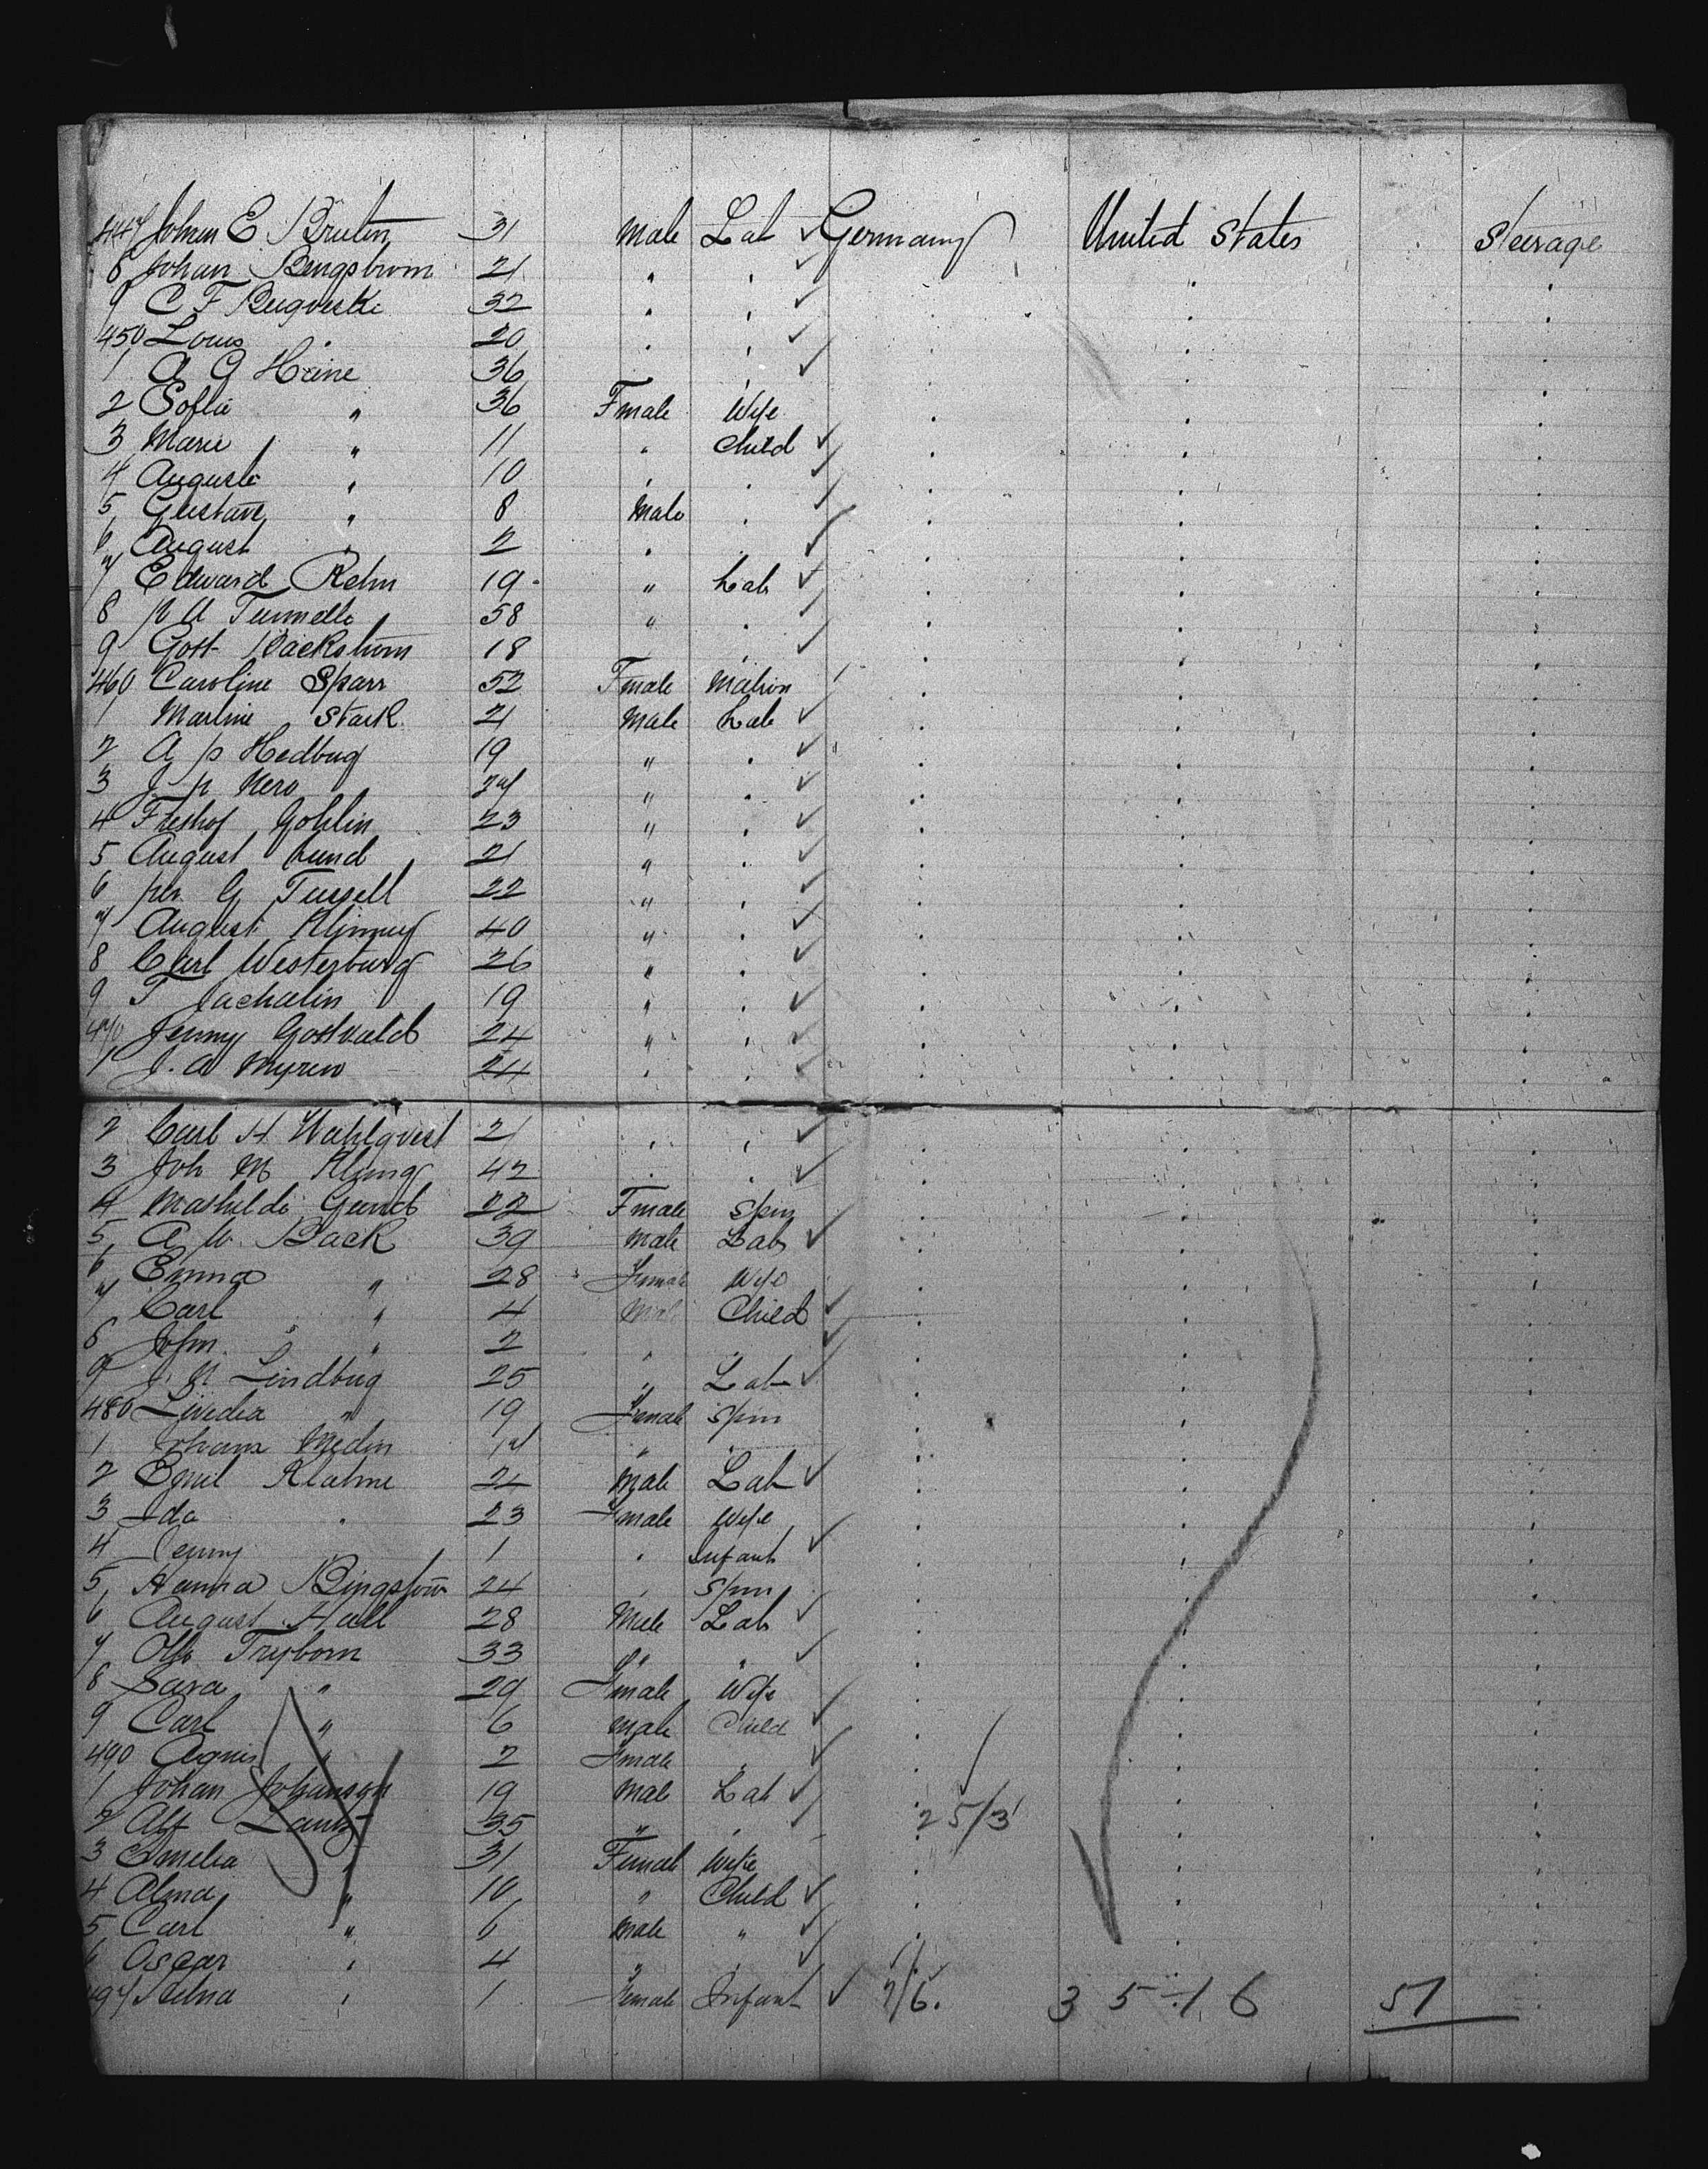 447 Johan E. Brulin 31 Male Lab ✓ Germany United States Steerage
8 Johan Bengstrom 21 " " ✓ " " "
9 C F 32 " " ✓ " " "
450 Louis " 20 " " ✓ " " "
1 A G Heine 36 " " ✓ " " "
2 Sofia " 36 Fmale Wife " " "
3 Marie " 11 " Child ✓ " " "
4 Auguste " 10 " " ✓ " " "
5 Gustave " 8 Male " ✓ " " "
6 August " 2 " " ✓ " " "
7 Edward Rehn 19 " Lab ✓ " " "
8 58 " " ✓ " " "
9 Gott Backstrom 18 " " ✓ " " "
460 Caroline Sparr 52 Fmale Matron " " "
1 Martine Stark 21 Male Lab ✓ " " "
2 A p Hedbug 19 " " ✓ " " "
3 J p Nero 27 " " ✓ " " "
4 Gohlin 23 " " ✓ " " "
5 August Lund 21 " " ✓ " " "
6 per G Tussell 22 " " ✓ " " "
7 August 40 " " ✓ " " "
8 Carl Westerburg 26 " " ✓ " " "
9 19 " " ✓ " " "
470 Jenny Gottvald 24 " " ✓ " " "
1 J. A Myren 24 " " ✓ " " "
2 Carl H Wahlqvist 21 " " ✓ " " "
3 Joh M Kling 42 " " ✓ " " "
4 22 Fmale Spin " " "
5 A W Back 39 Male Lab ✓ " " "
6 Emma " 28 Female Wife " " "
7 Carl " 4 Male Child ✓ " " "
8 John " 2 " " ✓ " " "
9 J. N Lindbug 25 " Lab ✓ " " "
480 " 19 Female Spin " " "
1 Medin 17 " " " " "
2 Emil 24 Male Lab ✓ " " "
3 Ida " 23 Fmale Wife " " "
4 Jenny " 1 " Infant ✓ " " "
5 Hanna Bingstrom 24 " Spin " " "
6 August Hall 28 Male Lab ✓ " " "
7 Tryborn 33 " " ✓ " " "
8 Sara " 29 Fmale Wife " " "
9 Carl " 6 Male Child ✓ " " "
490 Agnis " 2 Fmale " ✓ " " "
1 Johan Johanson 19 Male Lab ✓ " " "
2 Alf 35 " " 25/3 " "
3 Emelia " 31 Female Wife " " "
4 Alma " 10 " Child ✓ " " "
5 Carl " 6 Male " ✓ " " "
6 Oscar " 4 " " ✓ " "
497 Selma " 1 Female Infant ✓ 7/6. 35 16 51 "